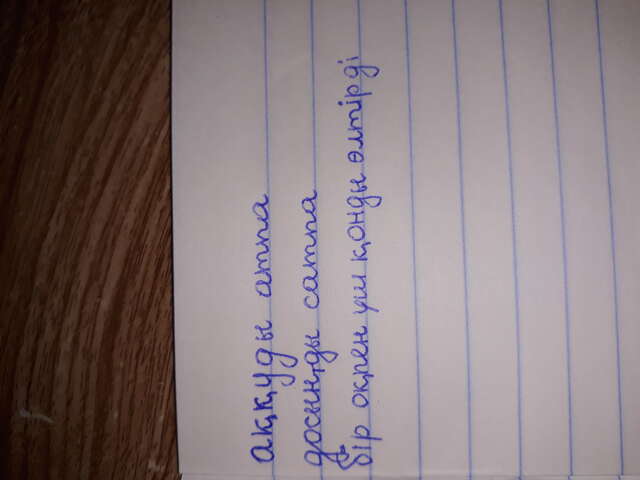 аққуды атпа
досыңды сатпа
бір оқпен үш қонды өлтірді